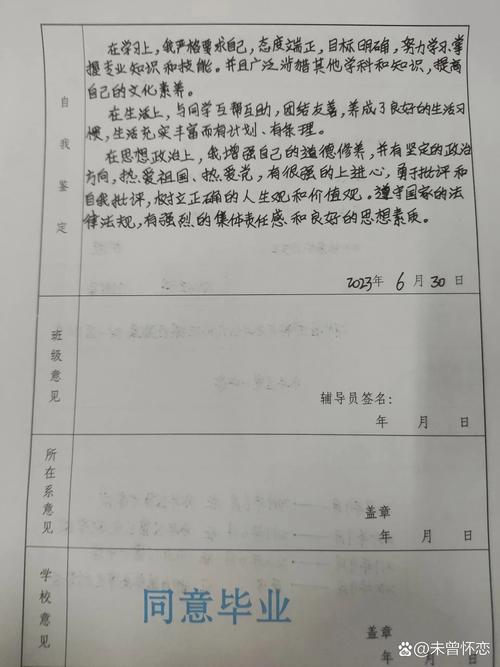 在学习上，我严格要求自己，态度端正，目标明确，努力学习掌
握专业知识和技能。并且广泛涉猎其他学科和知识，提高
自己的文化素养。
在生活上，与同学互帮互助，团结友善，养成了良好的生活习
惯，生活充实丰富而有计划、有条理。
在思想政治上，我增强自己的道德修养，并有坚定的政治
方向，热爱祖国、热爱党，有很强的上进心，勇于批评和
自我批评，树立正确的人生观和价值观。遵守国家的法
律法规，有强烈的集体责任感和良好的思想素质。
自我鉴定
2023年 6月30日
班级意见
辅导员签名：
年 月 日
所在系意见
盖章
年 月 日
学校意见
同意毕业
盖章
@未曾怀恋